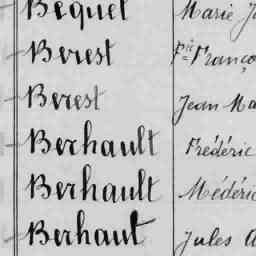 Bequet Marie J
Berest Pre Franço
Berest Jean Ma
Berhault Frédéric
Berhault Médéric
Berhaut Jules A